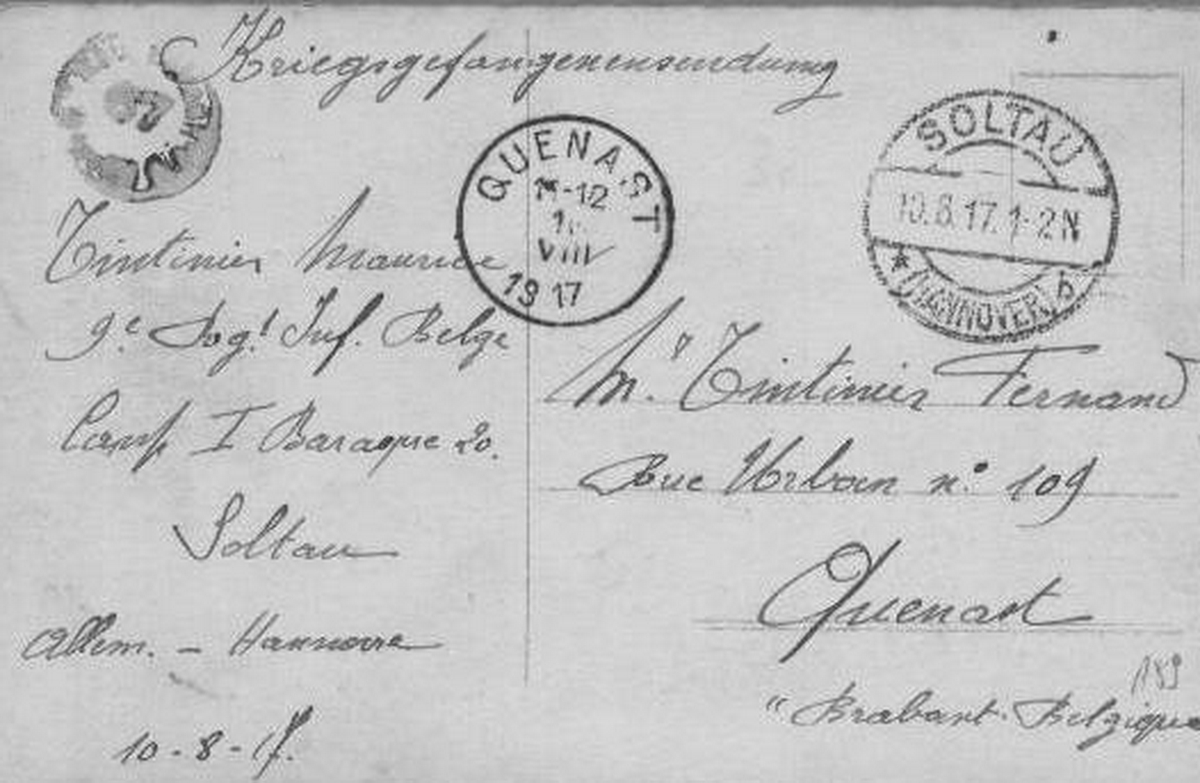 Kriegsgefangenensendung
QUENAST
11-12
VIII
1917
SOLTAU
10.8.17. 1-2N
* (HANNOVER) b
Tintinier Maurice
9e Regt Inf. Belge
Camp I Baraque 20.
Soltau
Allem. - Hannovre
10-8-17.
Mr Tintinier Fernand
Rue Urban n° 109
Quenast
"Brabant. Belgique
189